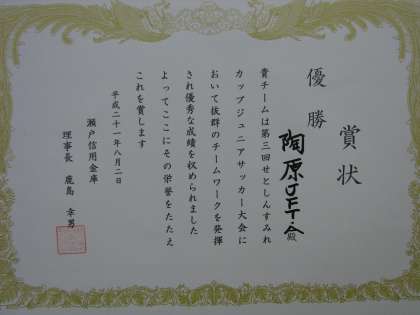 賞状
優勝
陶原JFT.A殿
貴チームは第三回せとしんすみれ
カップジュニアサッカー大会に
おいて抜群のチームワークを発揮
され優秀な成績を収められました
よってここにその栄誉をたたえ
これを賞します
平成二十一年八月二日
瀬戸信用金庫
理事長 鹿島幸男